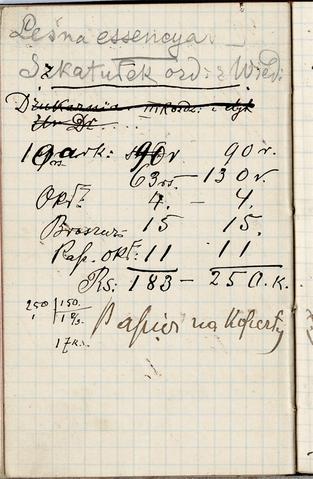 Leśna essencya
Szkatułek ord: z Wied:
Drukarnia
19 ark: 90 r 90 r.
63 rs. 130 r.
Okł: 4. — 4.
Broszur. 15 15.
Pap. okł: 11 11
Rs: 183 — 250. K.
250 150.
17 K.
Papier na Koperty